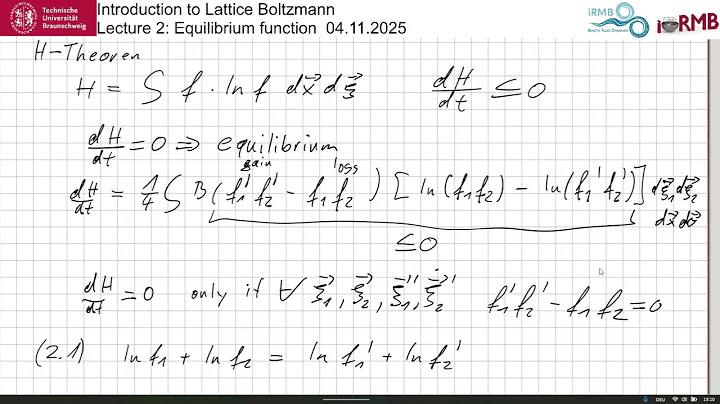 Technische Universität Braunschweig
Introduction to Lattice Boltzmann
Lecture 2: Equilibrium function 04.11.2025
iRMB
iRMB
H-Theorem
H = ∫ f · ln f dx⃗ dξ⃗    dH/dt ≤ 0
dH/dt = 0 ⇒ equilibrium
gain loss
dH/dt = 1/4 ∫ B (f₁'f₂' - f₁f₂) [ln(f₁f₂) - ln(f₁'f₂')] dξ⃗₁ dξ⃗₂
≤ 0
dH/dt = 0 only if ∀ ξ⃗₁, ξ⃗₂, ξ⃗₁', ξ⃗₂'    f₁'f₂' - f₁f₂ = 0
(2.1) ln f₁ + ln f₂ = ln f₁' + ln f₂'
DEU